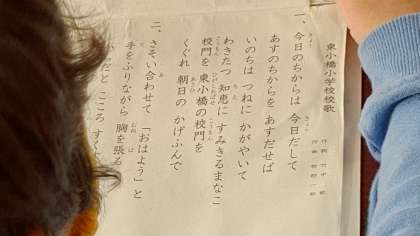 東小橋小学校校歌
一、今日のちからは 今日だして
あすのちからを あすだせば
いのちは つねに かがやいて
わきたつ 知恵に すみきるまなこ
校門を 東小橋の校門を
くぐれ 朝日の かげふんで
二、さそい合わせて 「おはよう」と
手をふりながら 胸を張る
だと こころ すく